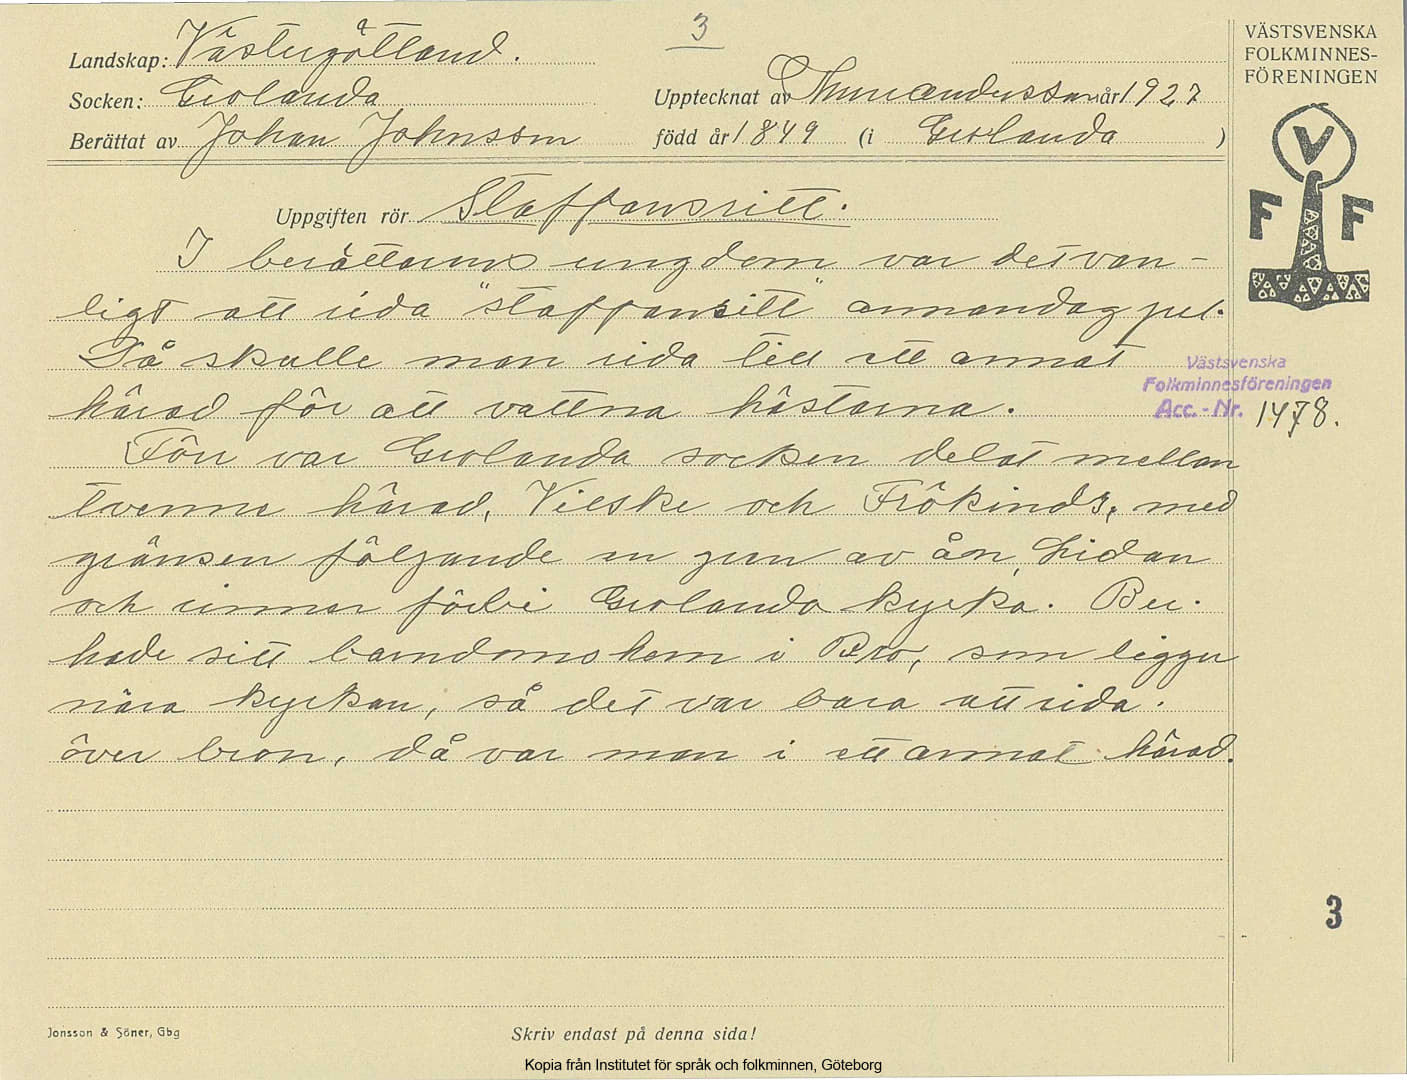 3
VÄSTSVENSKA
FOLKMINNES-
FÖRENINGEN
Landskap: Västergötland.
Socken: Grolanda
Upptecknat av Thure Andersson år 1927
Berättat av Johan Johnsson född år 1849 (i Grolanda )
V
F F
Uppgiften rör Staffansritt.
I berättarens ungdom var det van-
ligt att rida "staffansritt" annandag jul.
Då skulle man rida till ett annat
härad för att vattna hästarna.
Västsvenska
Folkminnesföreningen
Acc. - Nr. 1478.
Förr var Grolanda socken delat mellan
tvenne härad, Vilske och Frökinds, med
gränsen följande en gren av ån Lidan
och rinner förbi Grolanda kyrka. Ber.
hade sitt barndomshem i Bro, som ligger
nära kyrkan, så det var bara att rida
över bron, då var man i ett annat härad.
3
Jonsson & Söner, Gbg
Skriv endast på denna sida!
Kopia från Institutet för språk och folkminnen, Göteborg